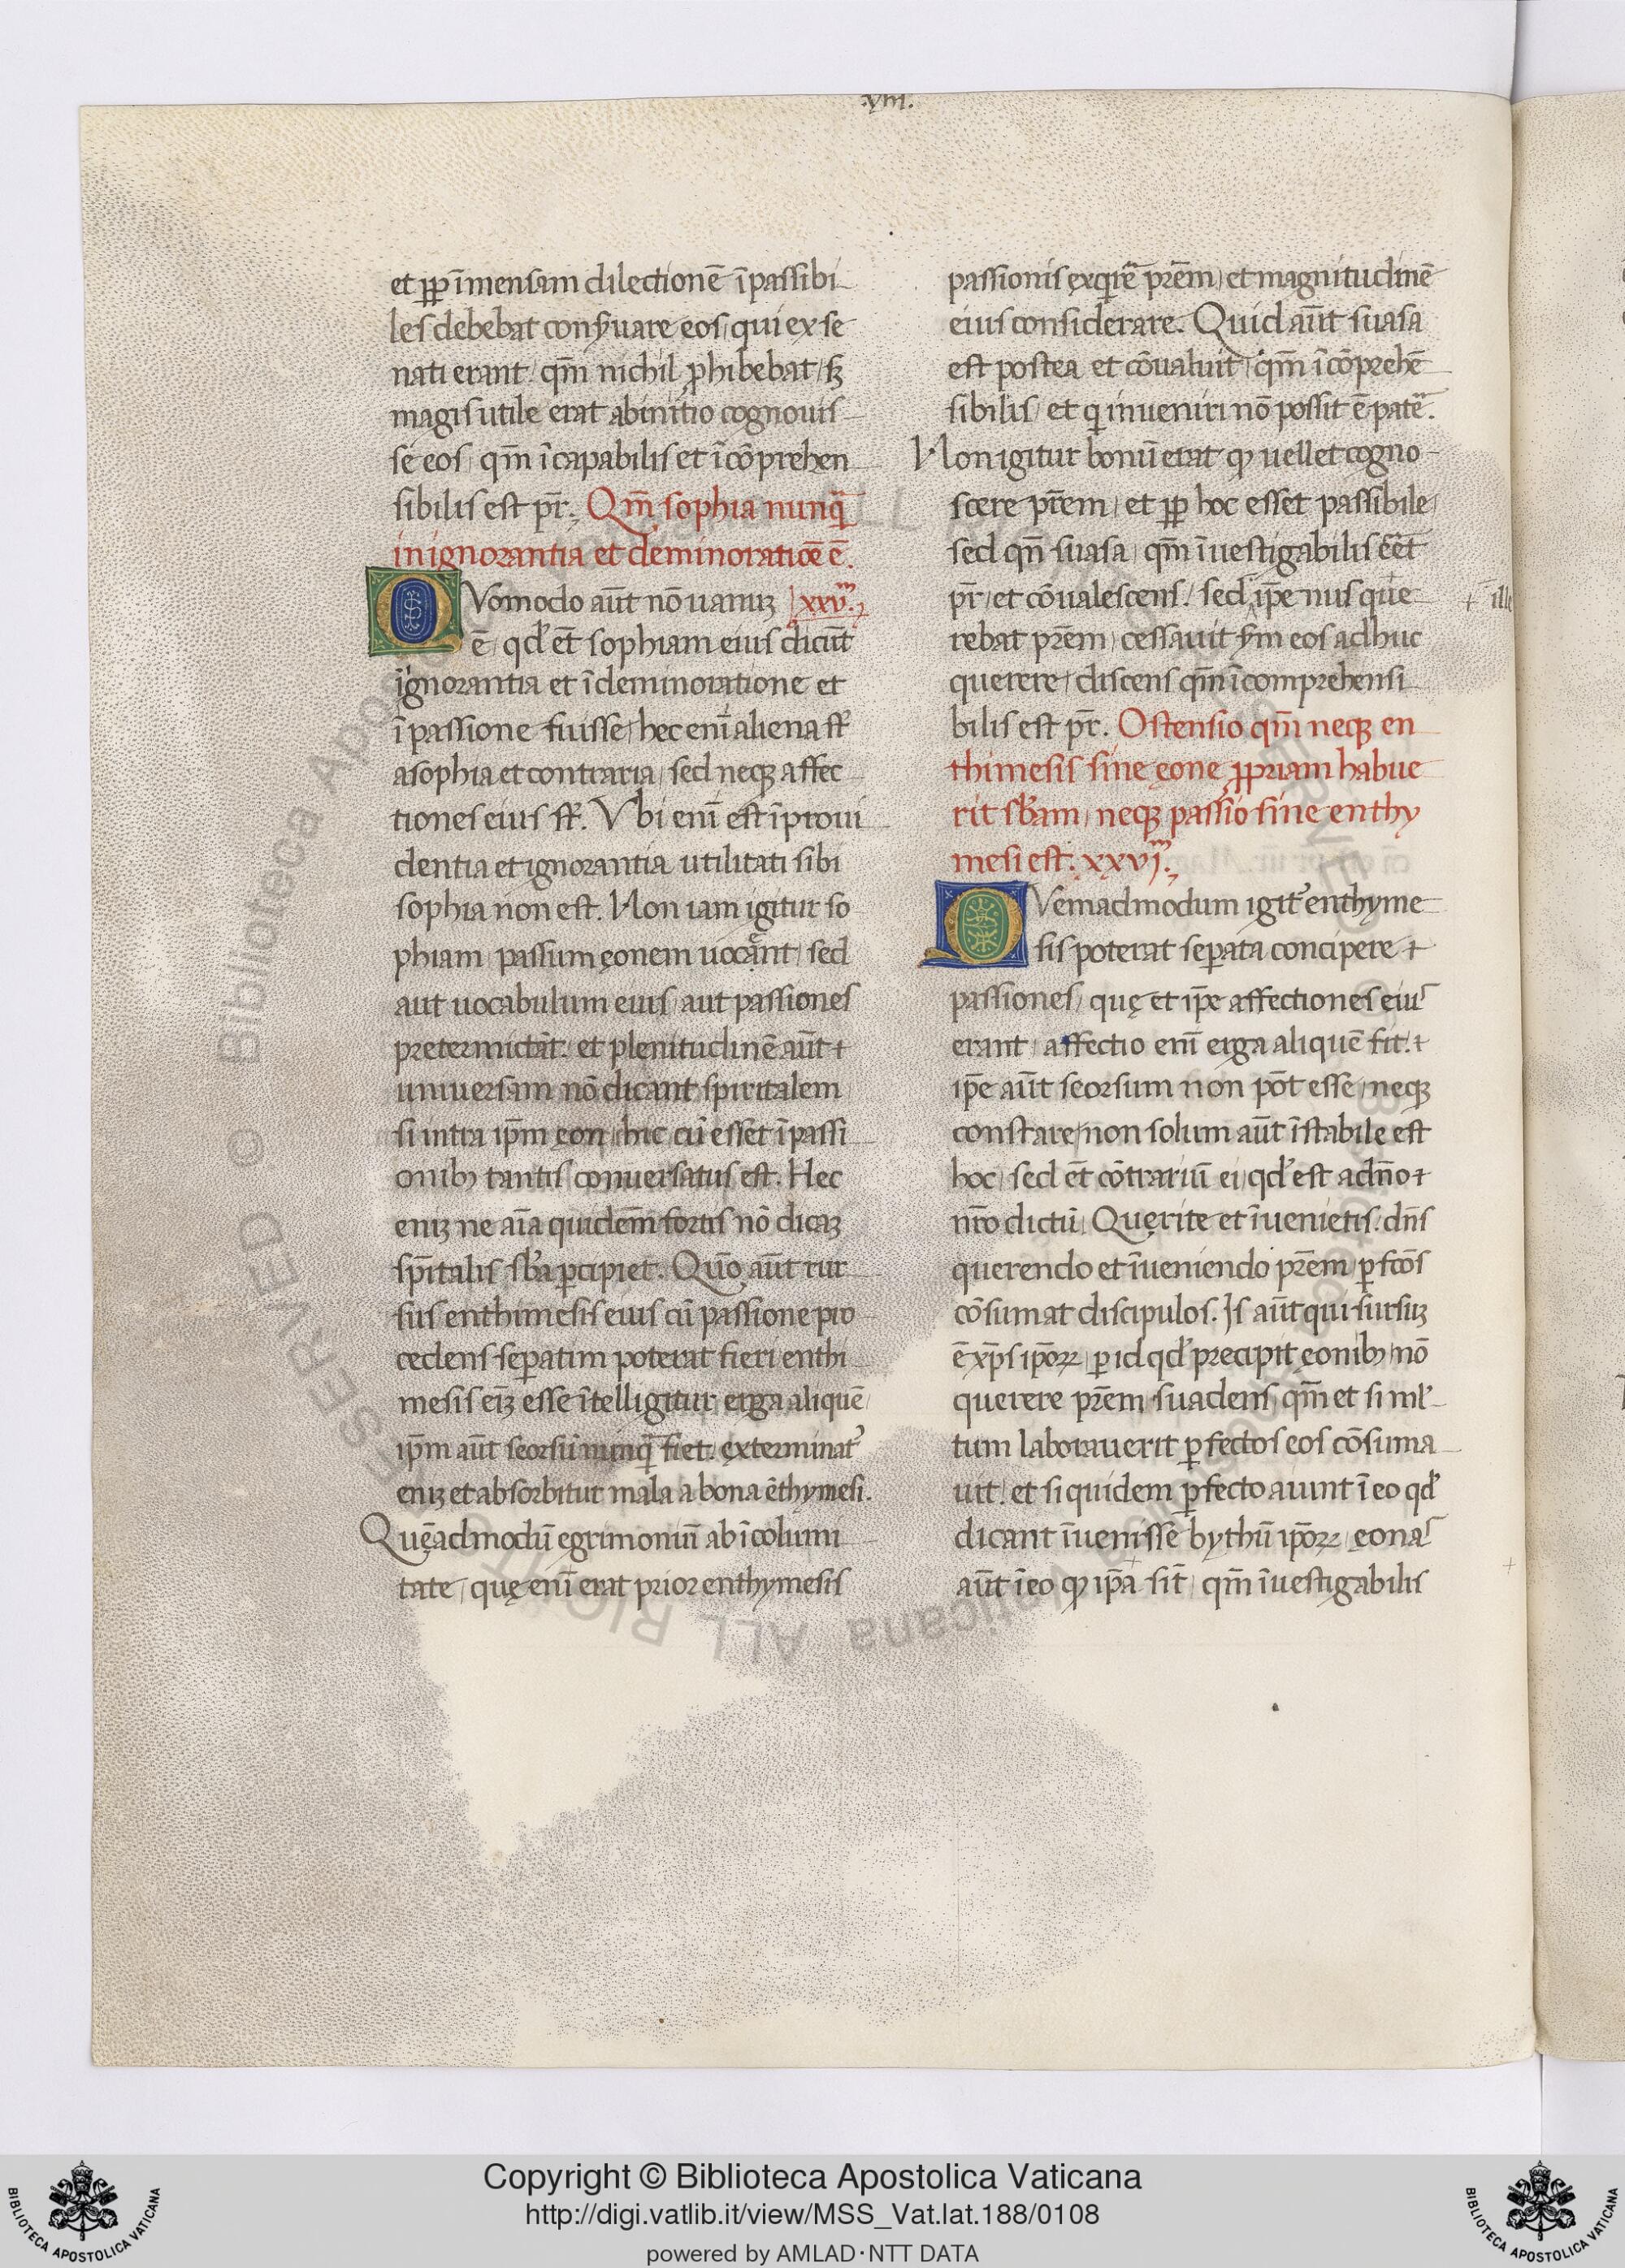 .xiii.
et ꝓp̄ īmensam dilectionē īpassibi
les debebat conẜuare eos, qui ex se
nati erant. qm̄ nichil ꝓhibebat, sꝫ
magis utile erat ab initio cognouis
se eos, qm̄ īcapabilis et īcōprehen
sibilis est pr̄. Qm̄ sophia nunq̄
in ignorantia et deminoratiōe ē.
Vomodo aūt nō uanuꝫ xxv.m̄
ē, qđ et̄ sophiam eius dicūt
īgnorantia et īdeminoratione et
ī passione fuisse, hec enī aliena st̄
a sophia et contraria, sed neqꝫ affec
tiones eius st̄. Vbi enī est īproui
dentia et ignorantia utilitati sibi
sophia non est. Non iam igitur so
phiam passum ęonem uocant, sed
aut uocabulum eius aut passiones
pretermictāt. et plenitudinē aūt ⁊
uniuersam nō dicant spiritalem
si intra ip̄m ęon hic cū esset ī passi
onibꝫ tantis conuersatus est. Hec
eniꝫ ne aīa quidem fortis nō dicaꝫ
sp̄italis sƀa ꝑcipiet. Quō aūt rur
sus enthimesis eius cū passione pro
cedens seꝑatim poterat fieri enthi
mesis eiꝫ esse ītelligitur erga aliquē
ip̄m aūt seorsū nunq̄ fiet. exterminat᷑
eniꝫ et absorbitur mala a bona ēthymesi.
Quēadmodū egrimoniū ab īcolumi
tate, quę enī erat prior enthymesis
passionis exqrē prēm, et magnitudinē
eius considerare. Quid aūt suasa
est postea et cōualuit, qm̄ īcōprehē
sibilis, et q inueniri nō possit ē patē.
Non igitur bonū erat ꝙ uellet cogno
scere prēm, et ꝓp̄ hoc esset passibile,
sed qn̄ suasa, qm̄ īuestigabilis eēt
pr̄, et cōualescens. sed ip̄e nus que
+ ille
rebat prēm, cessauit ẜm eos adhuc
querere, discens qm̄ īcomprehensi
bilis est pr̄. Ostensio qm̄ neqꝫ en
thimesis sine ęone ꝓpriam habue
rit sƀam, neqꝫ passio sine enthy
mesi est. xxvj.m̄
Vemadmodum igit᷑ enthyme
sis poterat seꝑata concipere ⁊
passiones, quę et ip̄e affectiones eius
erant, affectio enī erga aliquē fit. ⁊
ip̄e aūt seorsum non pōt esse, neqꝫ
constare, non solum aūt īstabile est
hoc, sed et̄ cōtrariū ei, qđ est a dn̄o ⁊
nr̄o dictū, Querite et īuenietis. dn̄s
querendo et īueniendo prēm ꝑfcōs
cōsumat discipulos. Is aūt qui sursuꝫ
ē xp̄s ip̄oꝝ, ꝑ id qđ precipit ęonibꝫ nō
querere prēm suadens qm̄ et si ml᷑
tum laborauerit ꝑfectos eos cōsuma
uit. et si quidem ꝑfecto aiunt ī eo qđ
dicant īuenisse bythū ip̄oꝝ, ęonas
aūt ī eo ꝙ ip̄a sīt, qm̄ īuestigabilis
Copyright © Biblioteca Apostolica Vaticana
http://digi.vatlib.it/view/MSS_Vat.lat.188/0108
powered by AMLAD·NTT DATA